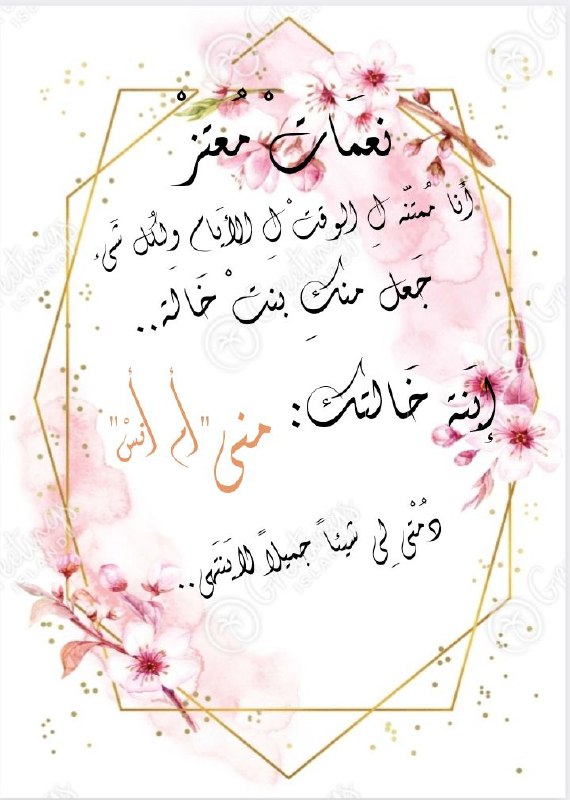 نعمَاتْ مُعتزْ
أنا مُمتنّه لِ الوقتْ لِ الأيَام ولكُل شَيء
جَعل منكِ بنتْ خَالَة..
إبَنة خَالتك:
منى "أم أنسْ"
دمُتْي لِي شيئاً جميلاً لايَنتَهى..
Greetings
ISLAND